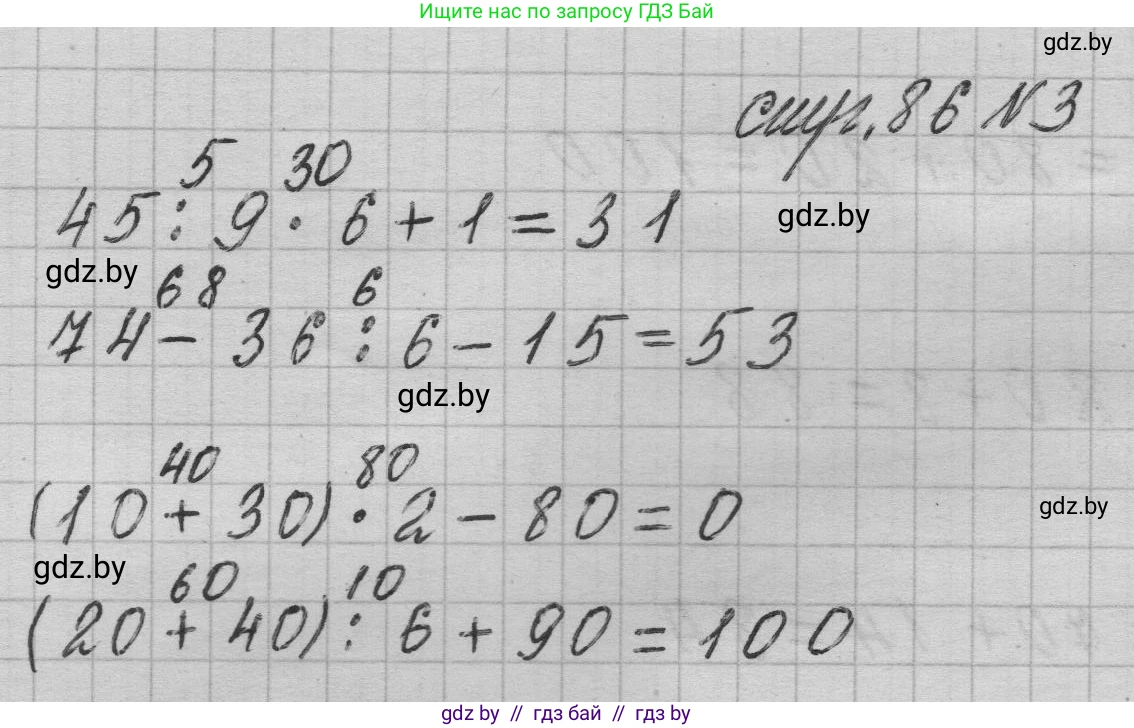 Ищите нас по запросу ГДЗ Бай
gdz.by
стр. 86 N 3
5 30
45 : 9 · 6 + 1 = 31
gdz.by
gdz.by
68 6
74 - 36 : 6 - 15 = 53
gdz.by
40 80
(10 + 30) · 2 - 80 = 0
gdz.by
gdz.by
60 10
(20 + 40) : 6 + 90 = 100
gdz by // гдз бай // гдз by